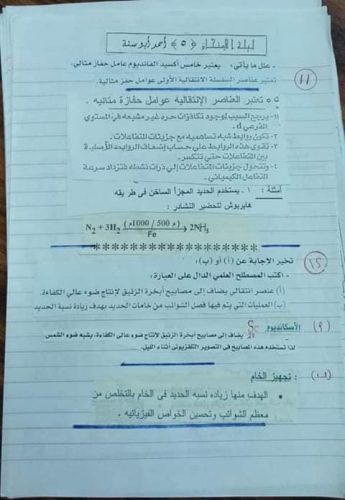 ليلة الامتحان (٥) أحمد أبو سنة
- علل ما يأتي: يعتبر خامس أكسيد الفانديوم عامل حفاز مثالي.
تعتبر عناصر السلسلة الانتقالية الأولى عوامل حفز مثالية.
(١١)
تعتبر العناصر الإنتقالية عوامل حفازة مثاليه .
١- يرجع السبب لوجود تكافؤات حره غير مشبعه في المستوي
الفرعي d.
٢- تكون روابط شبه تساهميه مع جزيئات المتفاعلات.
٣- تقوى هذه الروابط علي حساب إضعاف الروابط الأصلية
بين المتفاعلات حتي تنكسر.
٤- وتتحول جزيئات المتفاعلات إلي ذرات نشطه فتزداد سرعة
التفاعل الكيميائي.
أمثلة : ١- يستخدم الحديد المجزأ الساخن فى طريقه
هابر بوش لتحضير النشادر :
N2 + 3H2 (500 / 1000م) Fe → 2NH3
******************
(١٢)
تخير الإجابة عن (أ) أو (ب):
- اكتب المصطلح العلمي الدال على العبارة:
(أ) عنصر انتقالي يضاف إلى مصابيح أبخرة الزئبق لإنتاج ضوء عالي الكفاءة.
(ب) العمليات التي يتم فيها فصل الشوائب من خامات الحديد بهدف زيادة نسبة الحديد
(أ) الأسكانديوم Sc يضاف إلى مصابيح أبخرة الزئبق لإنتاج ضوء عالي الكفاءة، يشبه ضوء الشمس
لذا تستخدم هذه المصابيح فى التصوير التلفزيونى أثناء الليل.
(ب) : تجهيز الخام
• الهدف منها زياده نسبه الحديد فى الخام بالتخلص من
معظم الشوائب وتحسين الخواص الفيزيائيه .